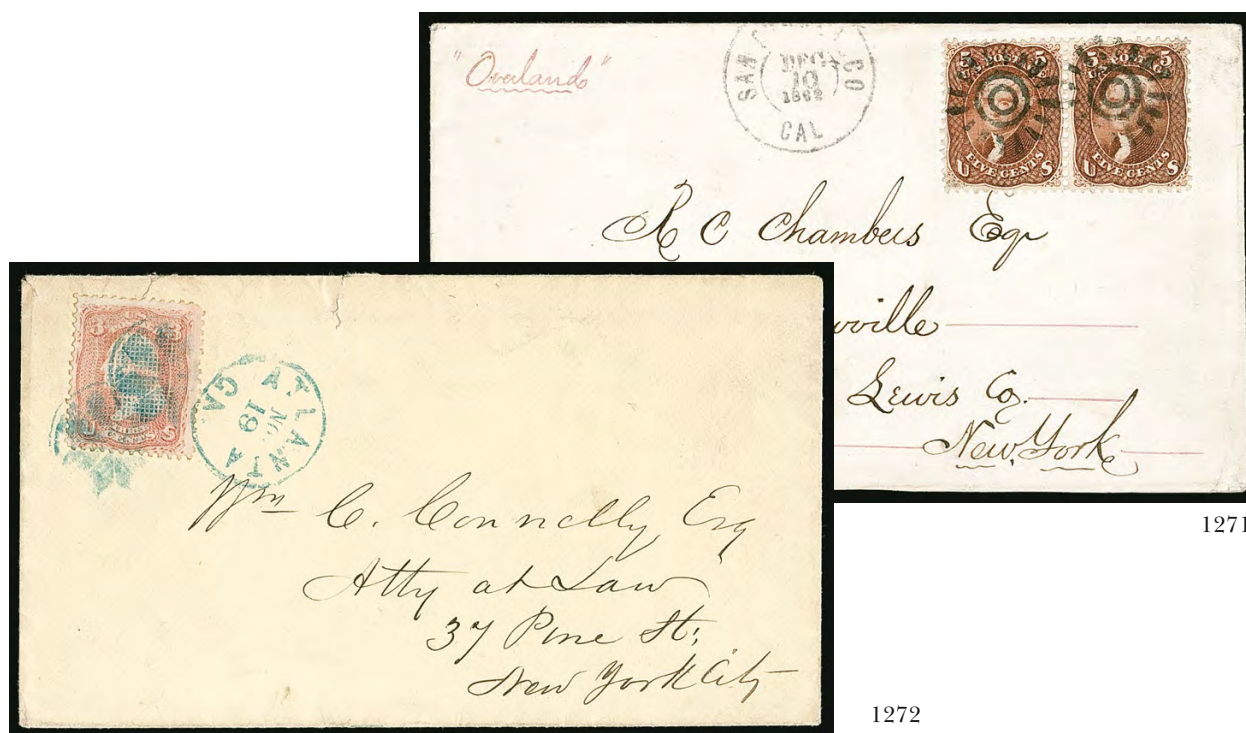 "Overland"
SAN CO
DEC
10
1862
CAL
5 5
U.S. POSTAGE
U S
FIVE CENTS
5 5
U.S. POSTAGE
U S
FIVE CENTS
R C Chambers Esqr
ville
Lewis Co.
New York
1271
3 3
U S
CENTS
ATLANTA GA.
NO
19
Wm C. Connelly Esq
Atty at Law
37 Pine St;
New York City
1272